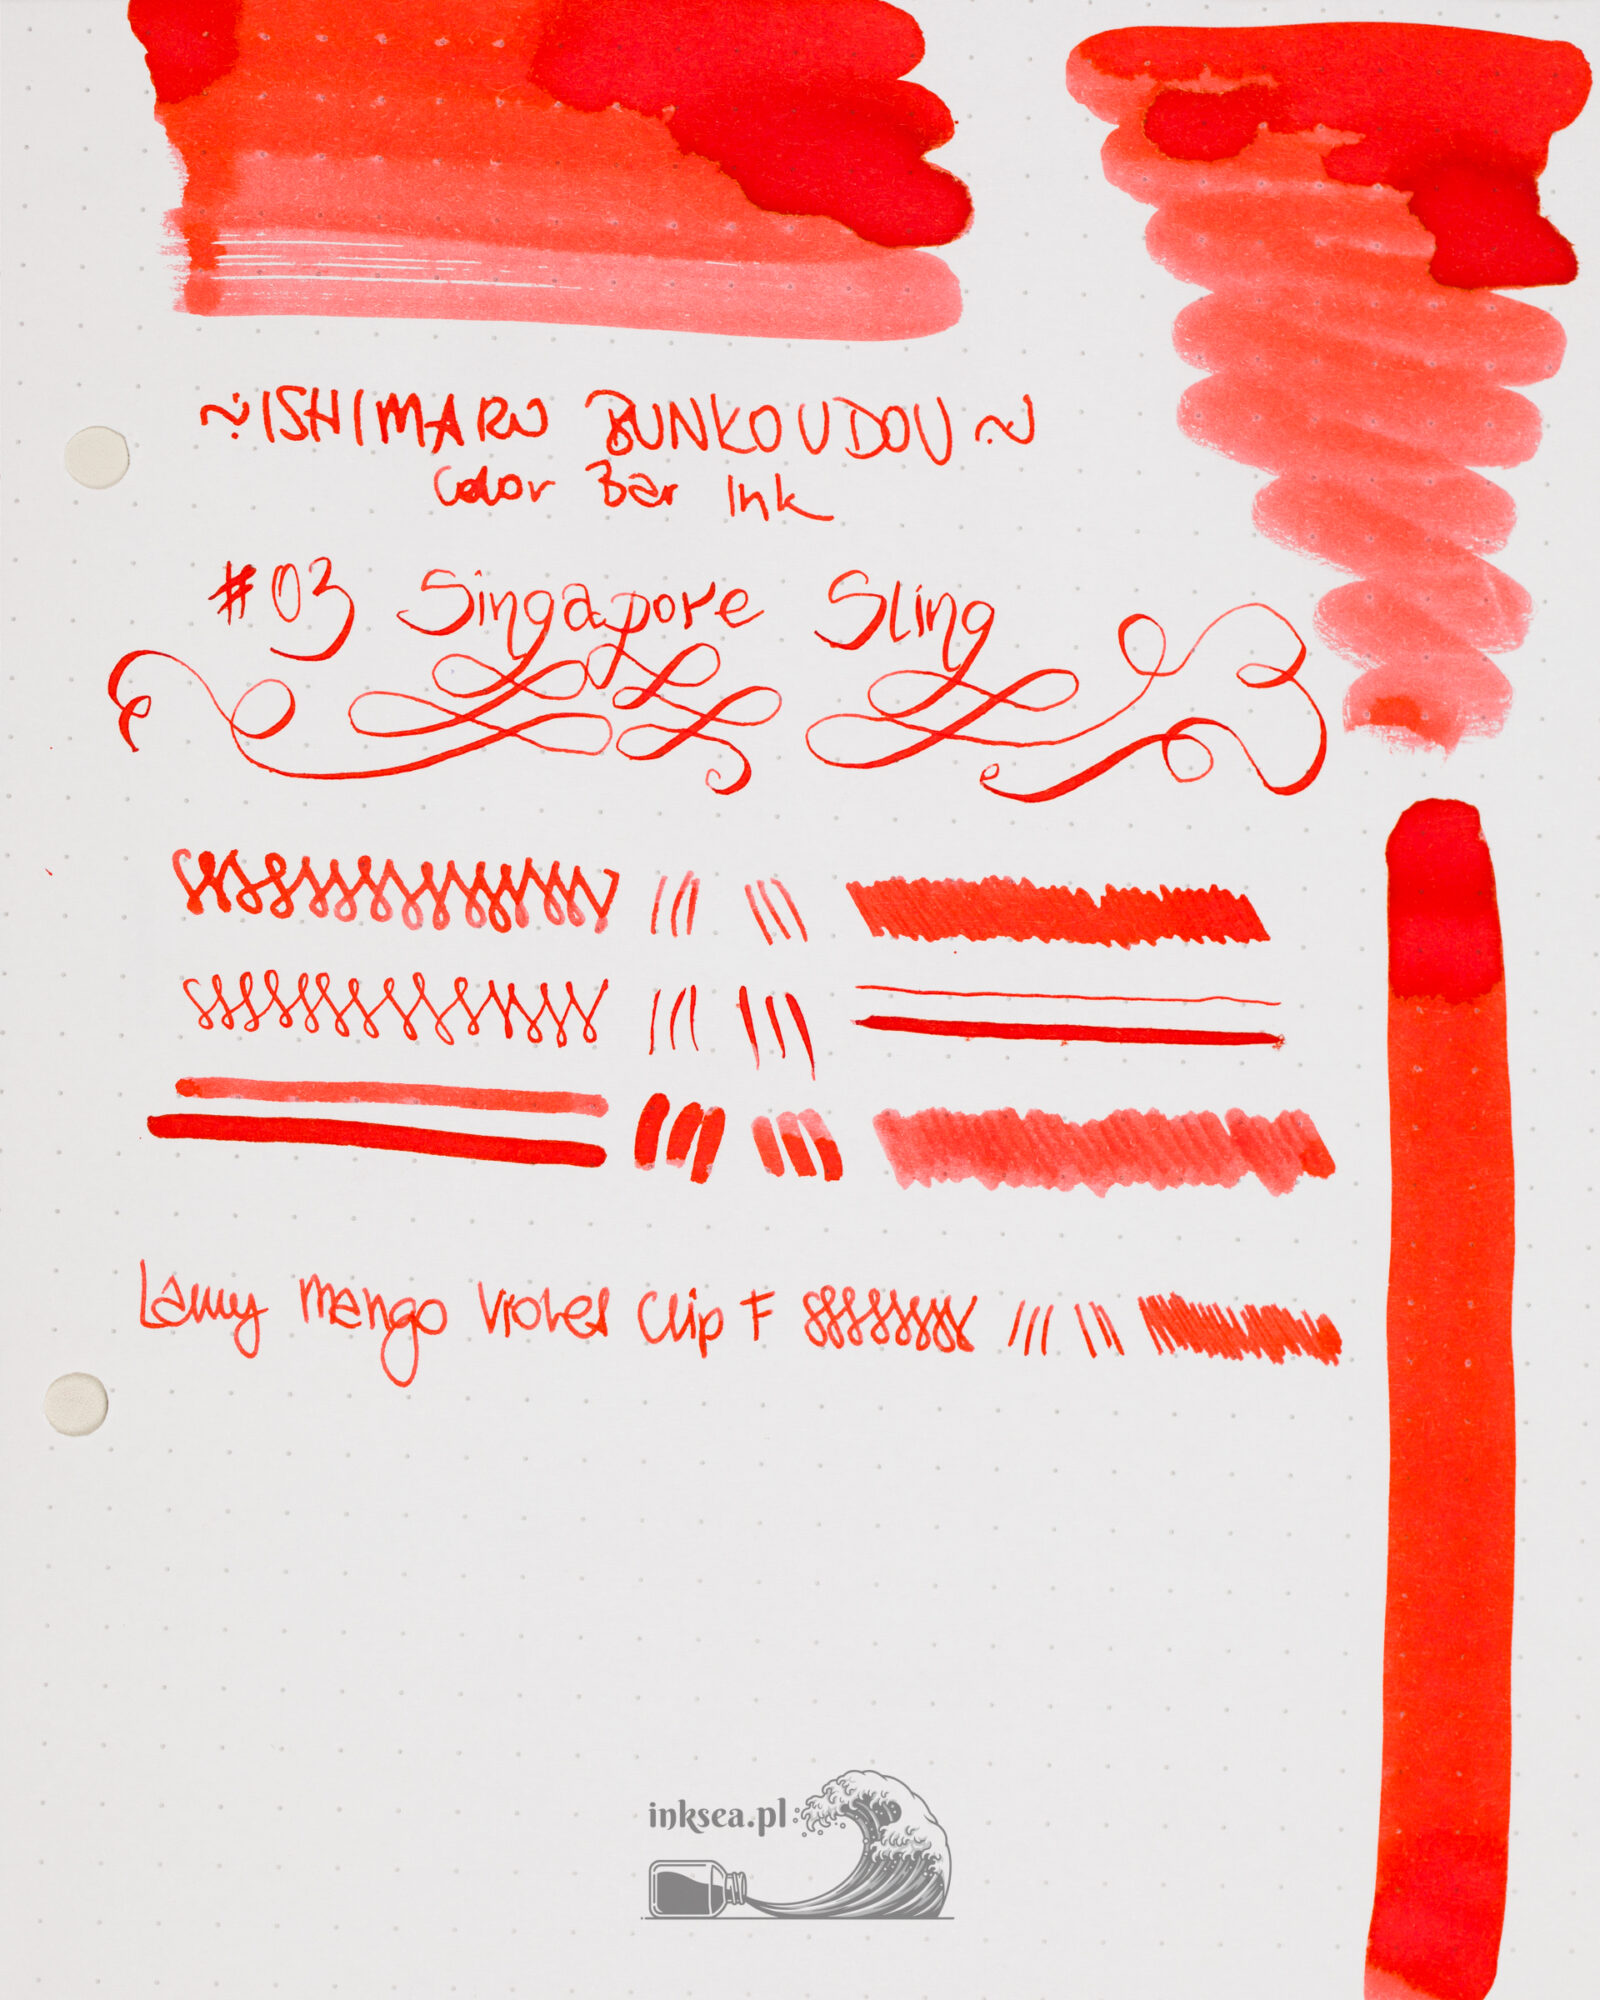 ~ISHIMARU BUNKOUDOU~
Color Bar Ink
#03 Singapore Sling
Lamy Mango Violet Clip F
inksea.pl